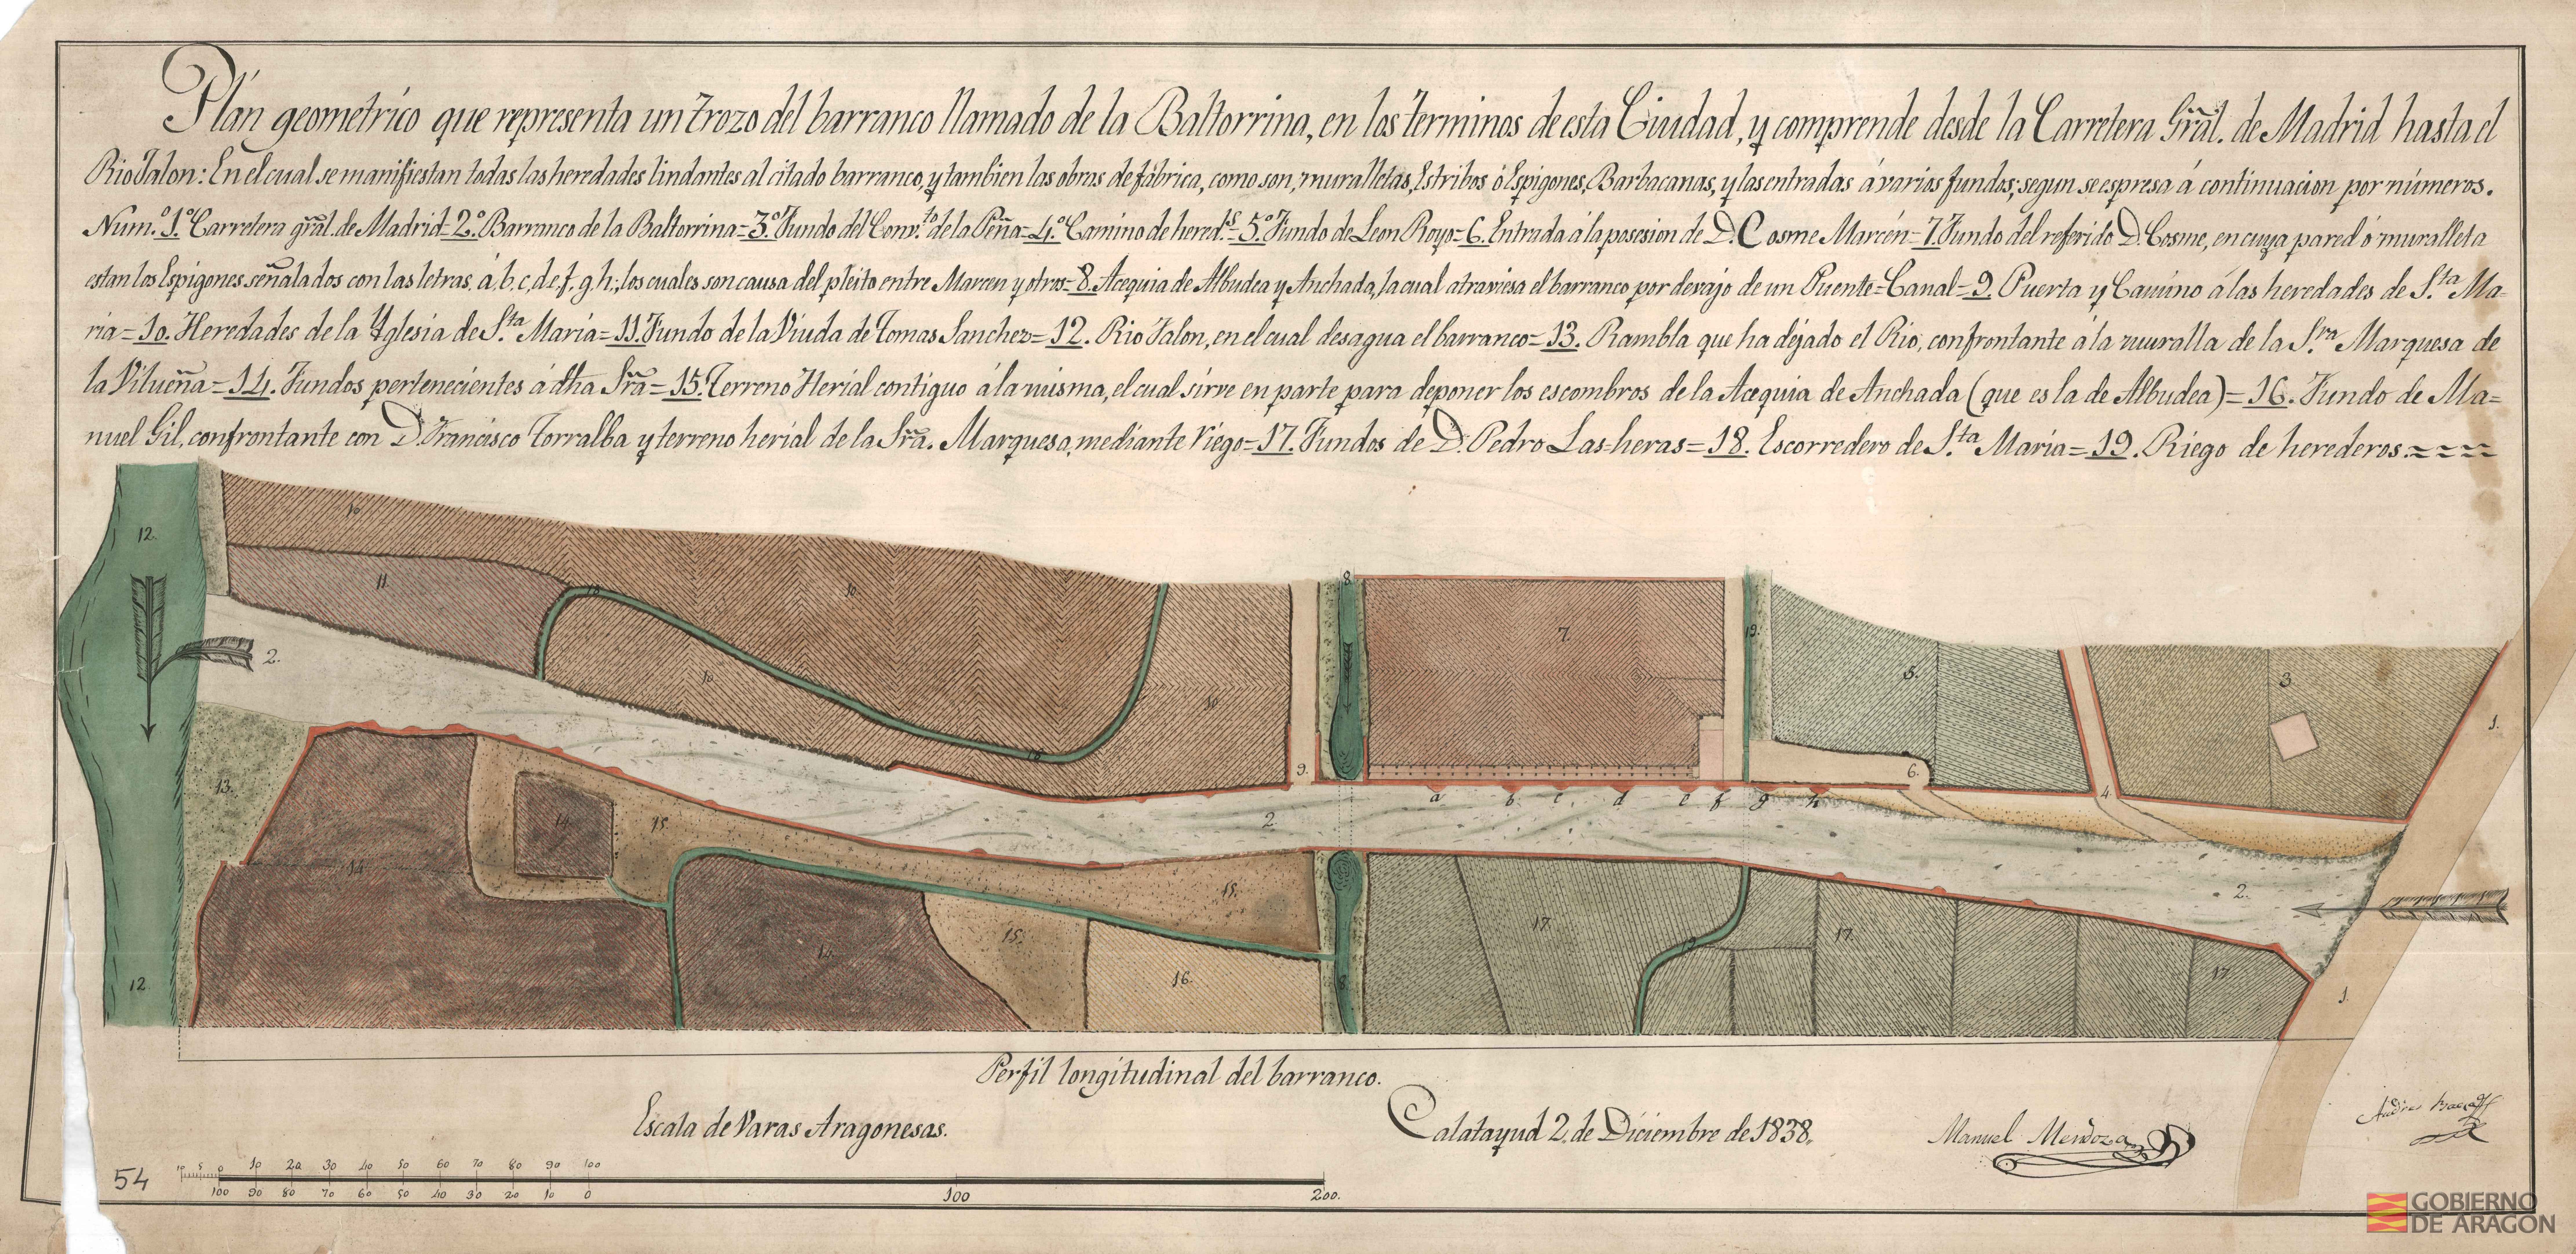 Plán geometríco que representa un trozo del barranco llamado de la Baltorrina, en los terminos de esta Ciudad, y comprende desde la Carretera Grãl. de Madrid hasta el
Rio Jalon: En el cual se manifiestan todas las heredades lindantes al citado barranco, y tambien las obras de fábrica, como son, muralletas, Estribos ó Espigones, Barbacanas, y las entradas á varios fundos; segun se espresa á continuacion por números.
Num.º 1.º Carretera grãl. de Madrid=2.º Barranco de la Baltorrina=3.º Fundo del Conv.to de la Peña=4.º Camino de hered.s=5.º Fundo de Leon Royo=6. Entrada á la posesion de D. Cosme Marcén=7. Fundo del referido D. Cosme, en cuya pared ó muralleta
estan los Espigones señalados con las letras, á, b, c, d, e, f, g, h; los cuales son causa del pleito entre Marcen y otros=8. Acequia de Albudea y Anchada, la cual atraviesa el barranco por devajo de un Puente=Canal=9. Puerta y Camino á las heredades de S.ta Ma-
ria=10. Heredades de la Yglesia de S.ta María=11. Fundo de la Viuda de Tomas Sanchez=12. Rio Jalon, en el cual desagua el barranco=13. Rambla que ha dejado el Rio, confrontante á la muralla de la S.ra Marquesa de
la Vilueña=14. Fundos pertenecientes á dha Srã=15. Terreno Herial contiguo á la misma, el cual sirve en parte para deponer los escombros de la Acequia de Anchada (que es la de Albudea)=16. Fundo de Ma=
nuel Gil, confrontante con D. Francisco Torralba y terreno herial de la Srã. Marquesa, mediante riego=17. Fundos de D. Pedro Las=heras=18. Escorredero de S.ta María=19. Riego de herederos.
10
12.
8.
11.
18
10
7.
19.
5.
3.
1.
2.
10
10
18
9.
6.
4.
13.
a b c d e f g h
14
15
2.
14
15.
2.
15.
17.
17.
19
14
16.
8
17
12
1.
Perfil longitudinal del barranco.
Escala de Varas Aragonesas.
Calatayud 2, de Diciembre de 1838.
Manuel Mendoza
54
10 5 0 10 20 30 40 50 60 70 80 90 100
100 90 80 70 60 50 40 30 20 10 0 100 200.
GOBIERNO
DE ARAGON